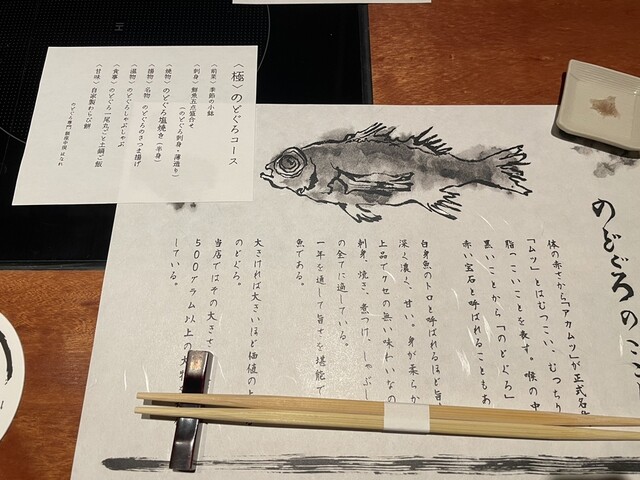 〈極〉のどぐろコース
〈前菜〉季節の小鉢
〈刺身〉鮮魚五点盛合せ
(のどぐろ刺身・薄造り)
〈焼物〉のどぐろ塩焼き(半身)
〈揚物〉名物 のどぐろのさつま揚げ
〈温物〉のどぐろしゃぶしゃぶ
〈食事〉のどぐろ一尾丸ごと土鍋ご飯
〈甘味〉自家製わらび餅
のどぐろ専門 銀座中俣 はなれ
のどぐろのこ
体の赤さから「アカムツ」が正式名
「ムツ」とはむつこい、むつちり
脂っこいことを表す。喉の中
黒いことから「のどぐろ」
赤い宝石と呼ばれることもあ
白身魚のトロと呼ばれるほど旨
深く濃く、甘い。身が柔らか
上品でクセの無い味わいなの
刺身、焼き、煮つけ、しゃぶし
の全てに適している。
一年を通して旨さを堪能で
魚である。
大きければ大きいほど価値の上
のどぐろ。
当店ではその大きさ
500グラム以上の大物
している。